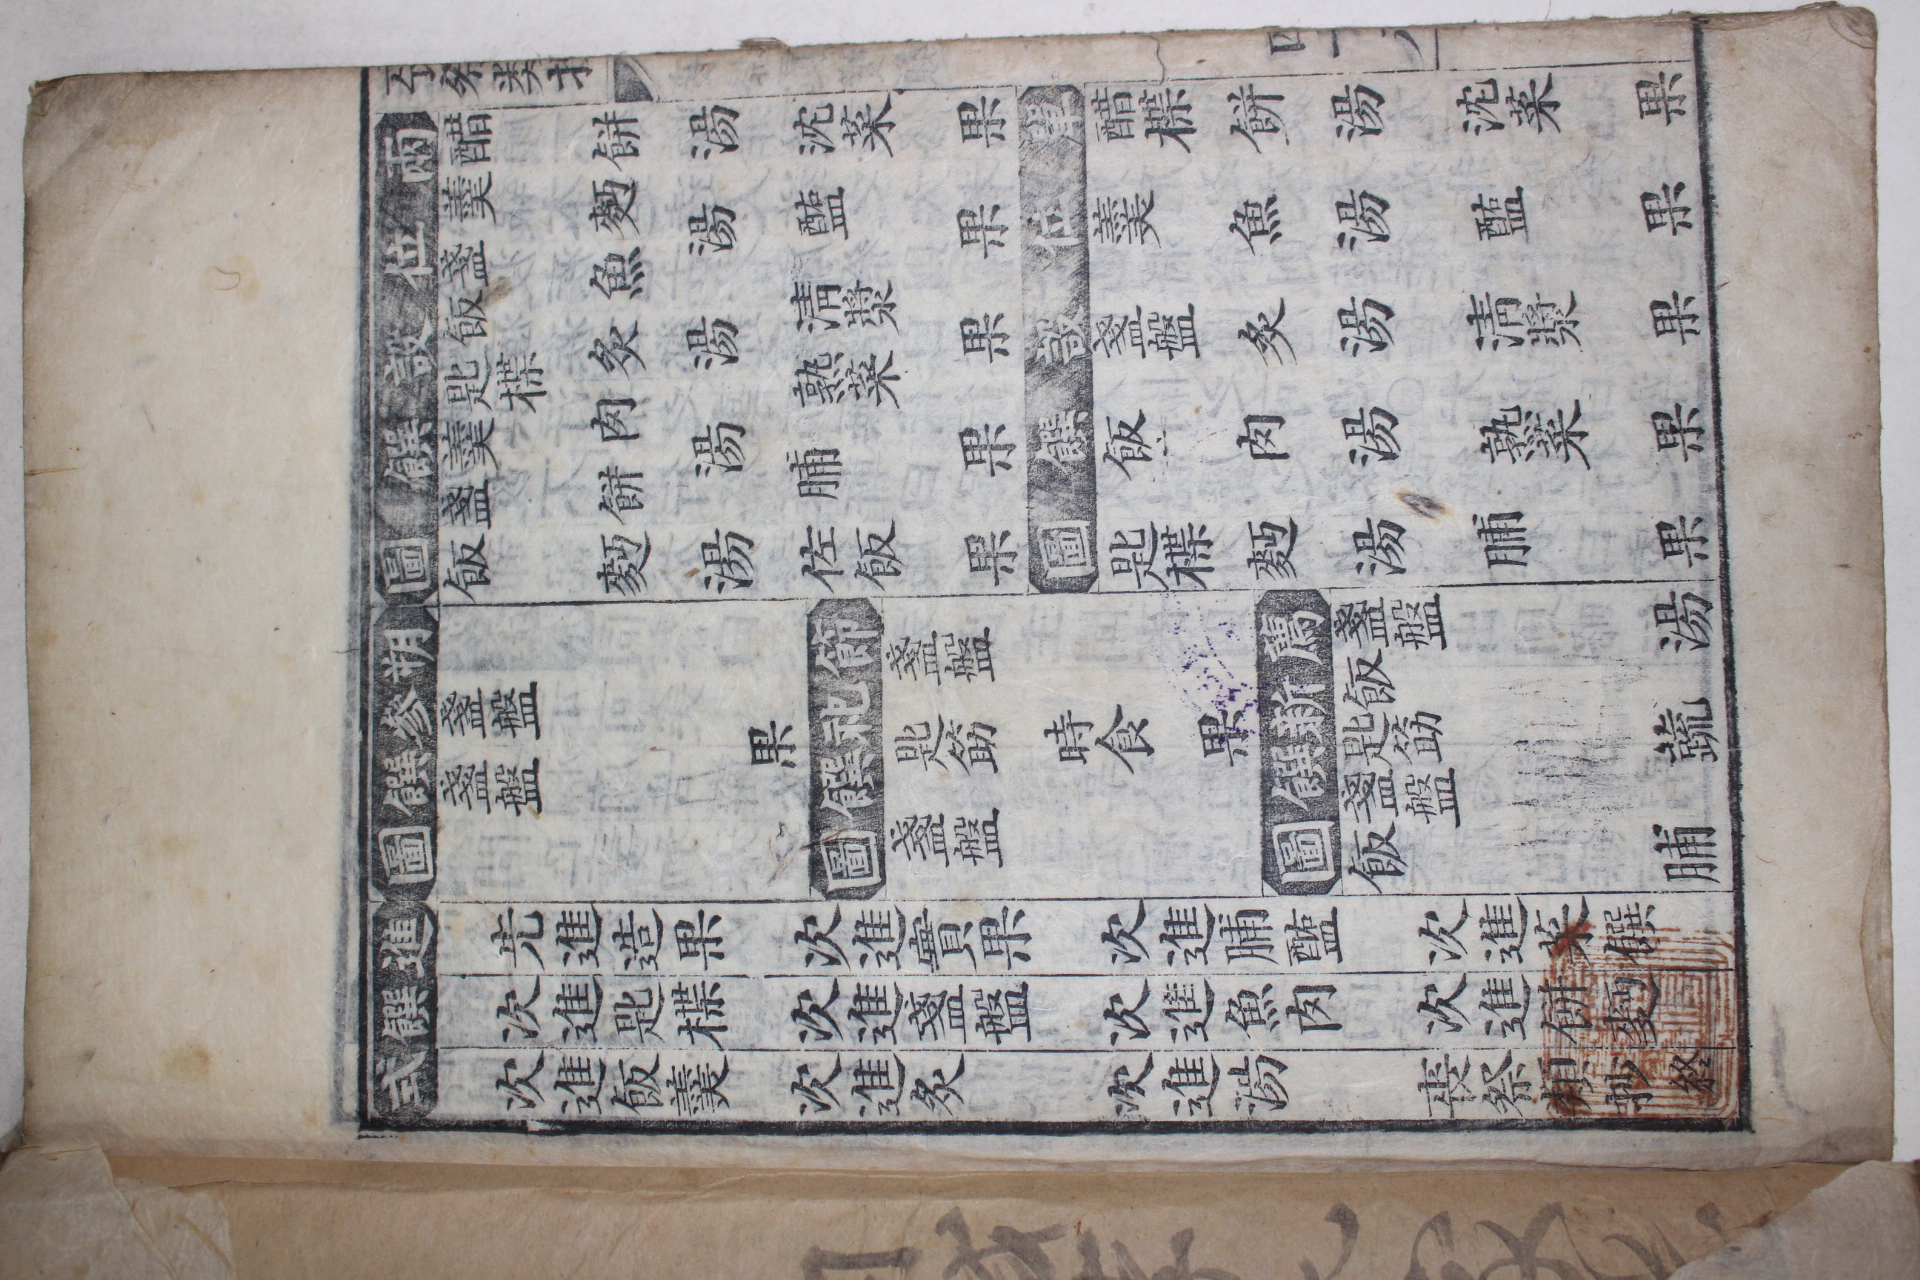 兩位設饌圖
醋 羹 盞 飯 匙楪 羹 盞 飯
餠 麪 魚 炙 肉 餠 麪
湯 湯 湯 湯 湯
沈菜 醢 淸醬 熟菜 脯 佐飯
果 果 果 果 果
單位設饌圖
醋楪 羹 盞盤 飯 匙楪
餠 魚 炙 肉 麪
湯 湯 湯 湯 湯
沈菜 醢 淸醬 熟菜 脯
果 果 果 果 果
朔參饌圖
盞盤 盞盤
果
節祀饌圖
盞盤 匙筯 盞盤
時食
果
薦新饌圖
盞盤 飯 匙筯 盞盤 飯
湯 蔬 脯
進饌式
先進造果 次進實果 次進脯醢 次進菜饌
次進匙楪 次進盞盤 次進魚肉 次進餠麪
次進飯羹 次進炙 次進湯 喪祭類抄終